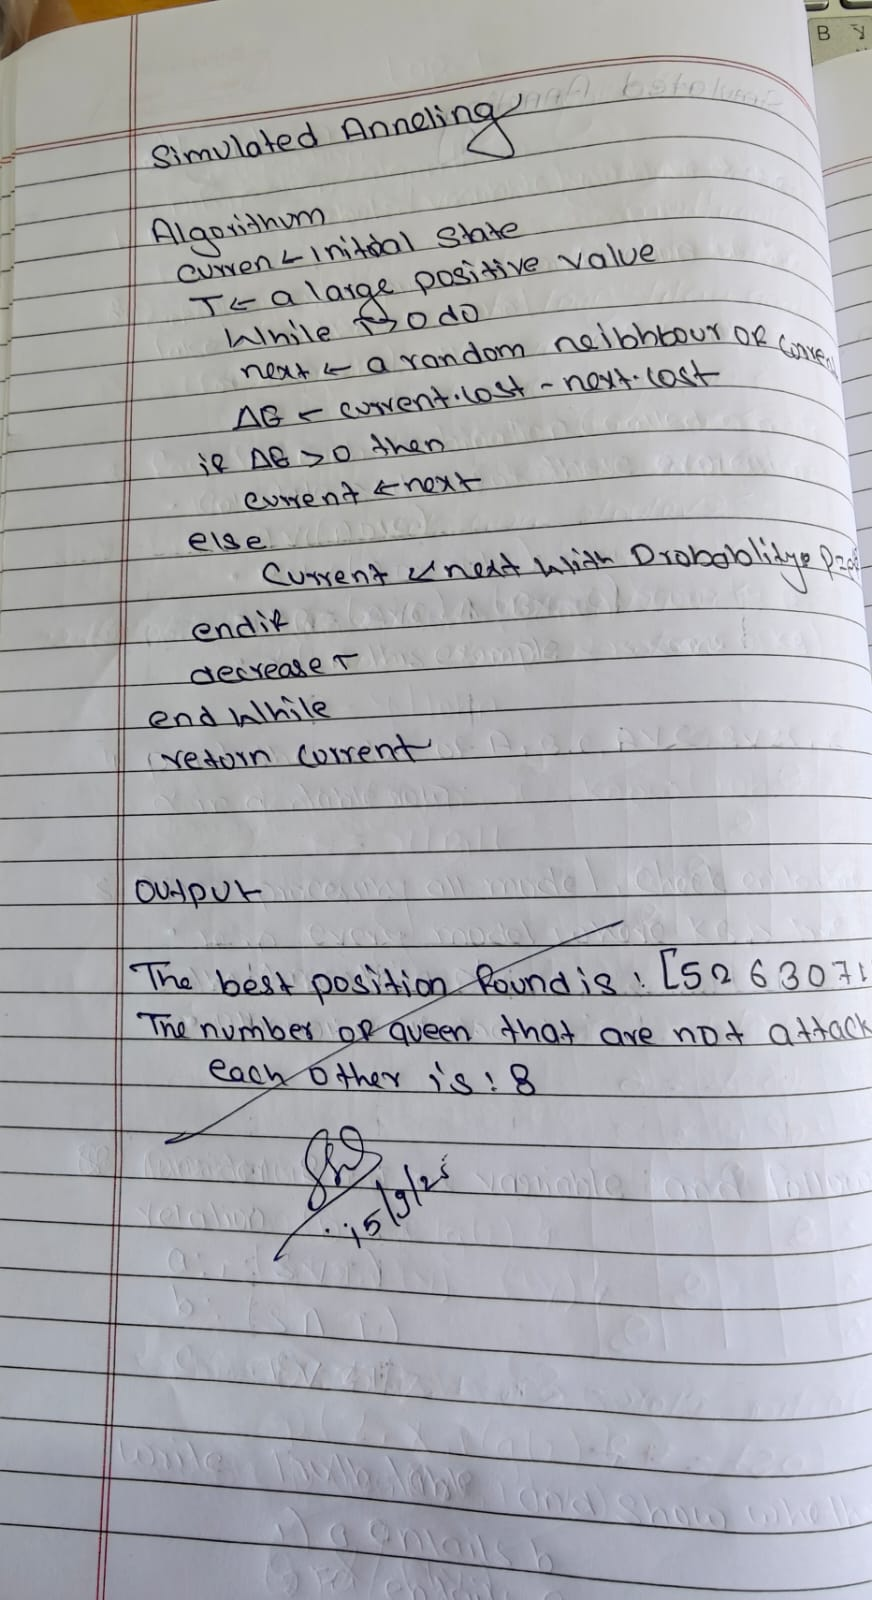 Simulated Anneling
Algorithum
Curren ← Initial State
T ← a large positive value
While T>0 do
next ← a random neibhbour OR Curren
ΔE ← current.cost - next.cost
if ΔE >0 then
current ← next
else
Current ← next with Probablitye
endif
decrease T
end While
return Current
Output
The best position found is : [5 2 6 3 0 7 1
The number of queen that are not attack
each other is : 8
15/9/25
B